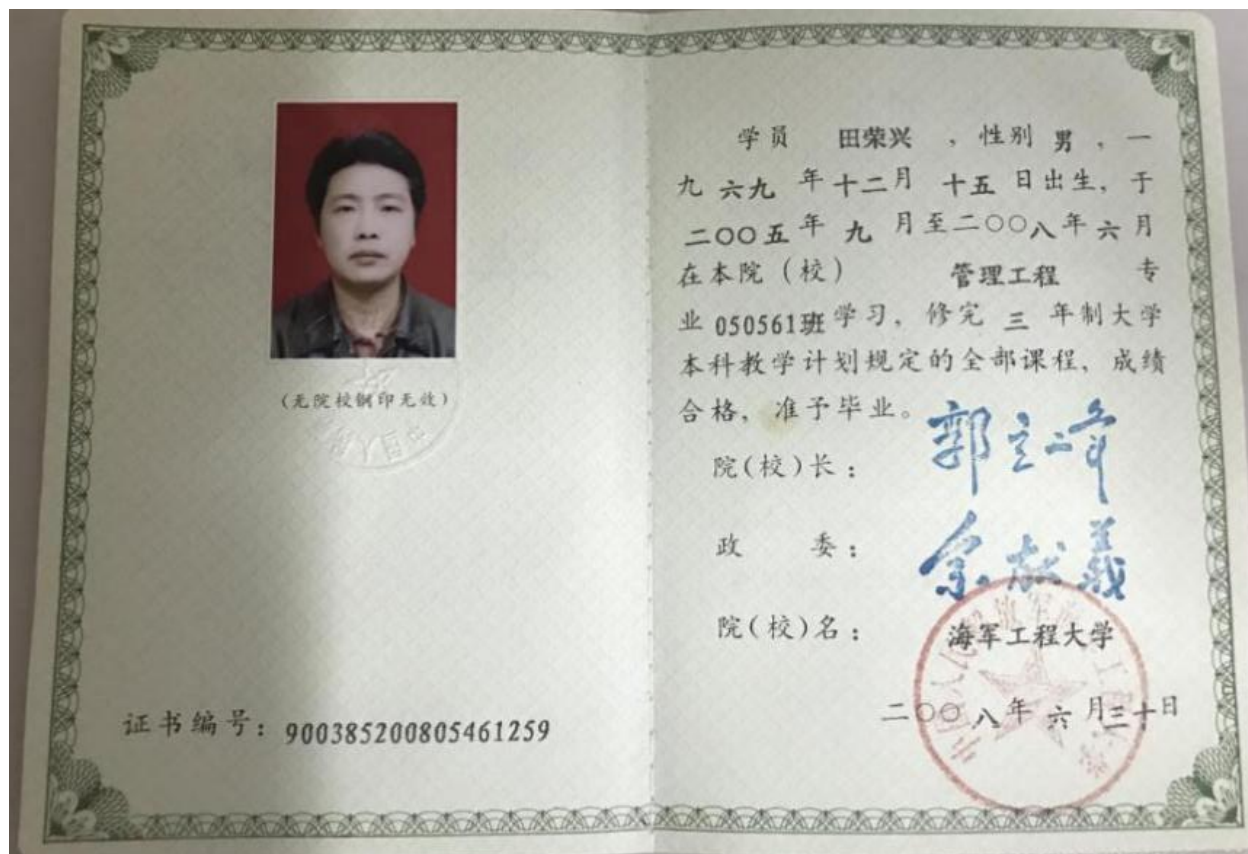 (无院校钢印无效)
证书编号：900385200805461259
学员 田荣兴 ，性别 男 ，一
九 六九 年 十二月 十五 日出生，于
二〇〇五 年 九 月至二〇〇八 年 六 月
在本院（校） 管理工程 专
业 050561班 学习，修完 三 年制大学
本科教学计划规定的全部课程，成绩
合格，准予毕业。
院(校)长：
政 委：
院(校)名： 海军工程大学
二〇〇八年 六 月三十日